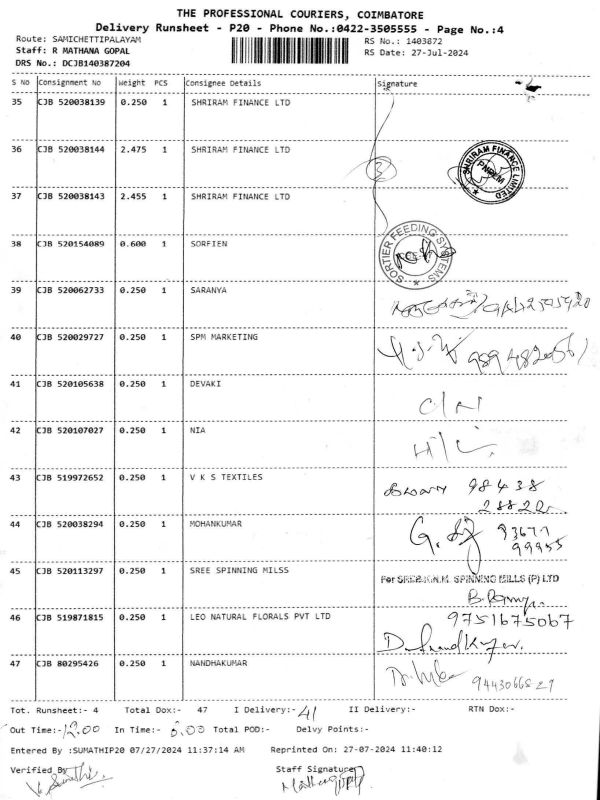 THE PROFESSIONAL COURIERS, COIMBATORE
Delivery Runsheet - P20 - Phone No.:0422-3505555 - Page No.:4
Route: SAMICHETTIPALAYAM
RS No.: 1403872
Staff: R MATHANA GOPAL
RS Date: 27-Jul-2024
DRS No.: DCJB140387204
S No Consignment No Weight PCS Consignee Details Signature
35 CJB 520038139 0.250 1 SHRIRAM FINANCE LTD
36 CJB 520038144 2.475 1 SHRIRAM FINANCE LTD
3
SHRIRAM FINANCE LIMITED
37 CJB 520038143 2.455 1 SHRIRAM FINANCE LTD
38 CJB 520154089 0.600 1 SORFIEN
SORTIER FEEDING SYSTEMS
39 CJB 520062733 0.250 1 SARANYA
40 CJB 520029727 0.250 1 SPM MARKETING
41 CJB 520105638 0.250 1 DEVAKI
42 CJB 520107027 0.250 1 NIA
43 CJB 519972652 0.250 1 V K S TEXTILES
98438
28820
44 CJB 520038294 0.250 1 MOHANKUMAR
93677
99955
45 CJB 520113297 0.250 1 SREE SPINNING MILSS
For SREE K.N.M. SPINNING MILLS (P) LTD
46 CJB 519871815 0.250 1 LEO NATURAL FLORALS PVT LTD
9751675067
47 CJB 80295426 0.250 1 NANDHAKUMAR
Tot. Runsheet:- 4 Total Dox:- 47 I Delivery:- 41 II Delivery:- RTN Dox:-
Out Time:- 12.00 In Time:- 6.00 Total POD:- Delvy Points:-
Entered By :SUMATHIP20 07/27/2024 11:37:14 AM Reprinted On: 27-07-2024 11:40:12
Verified By
Staff Signature